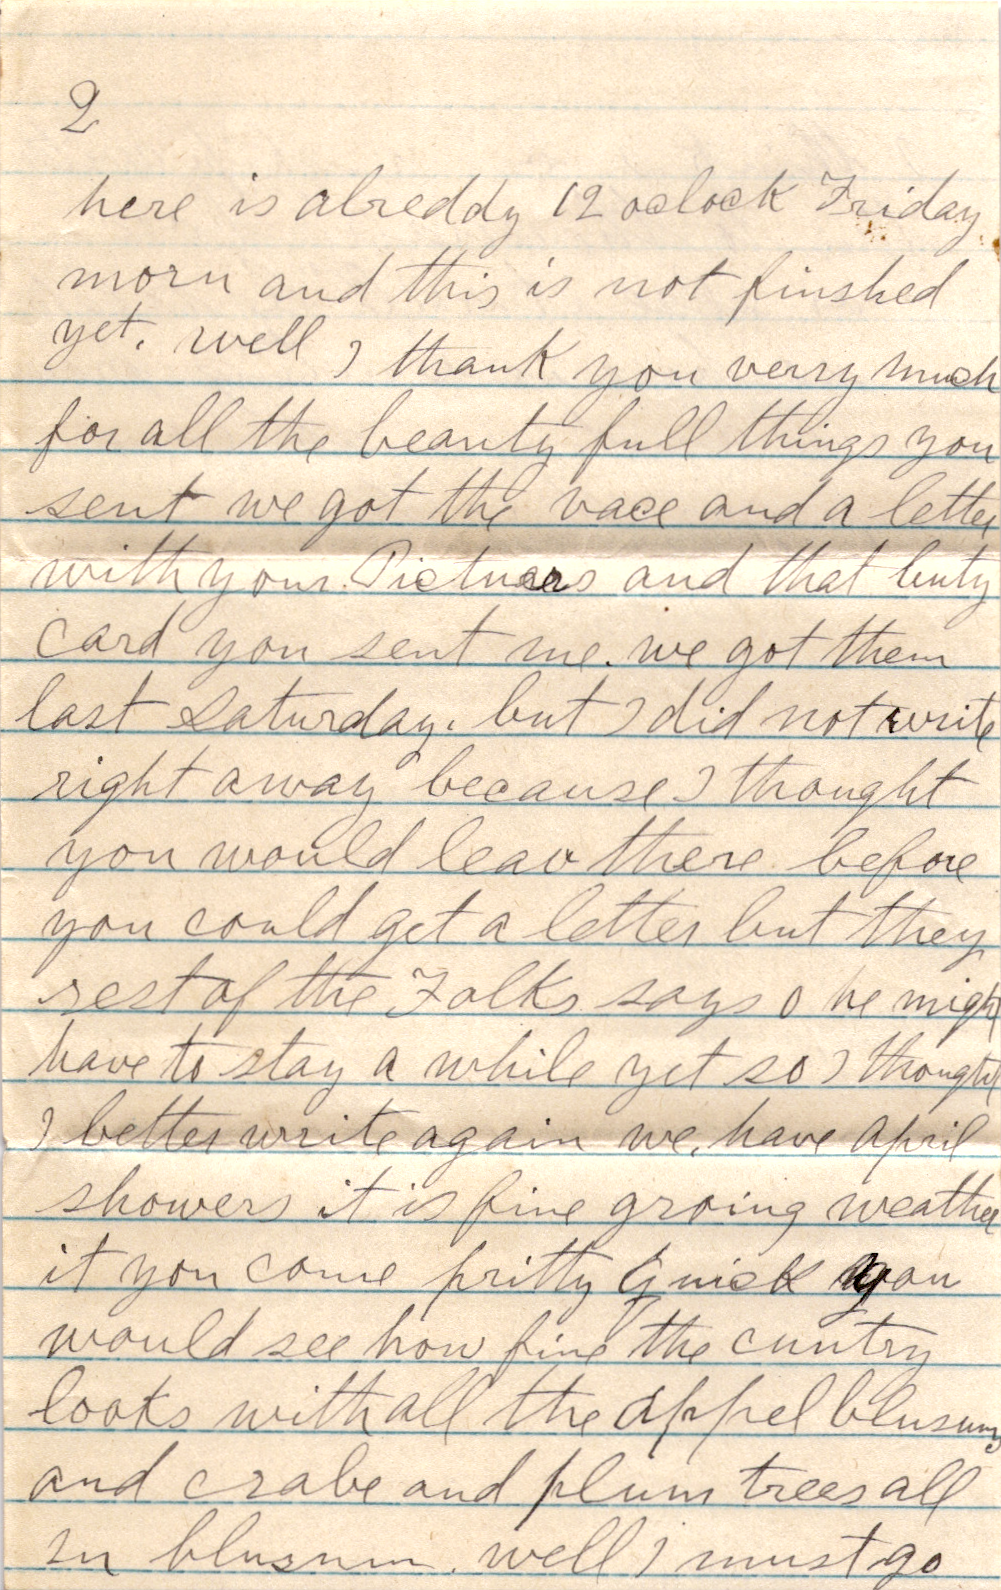 2
here is alreddy 12 oclock Friday
morn and this is not finshed
yet. well I thank you verry much
for all the beauty full things you
sent we got the vace and a letter
with your Pictuers and that buty
card you sent me. we got them
last Saturday. but I did not write
right away because I thought
you would leav there before
you could get a letter but they
rest of the Folks says o he migh
have to stay a while yet so I thought
I better write again we, have April
showers it is fine groing weather
it you come pritty Quick you
would see how fine the cuntry
looks with all the appel blusums
and crabe and plum trees all
in blusum. well I must go